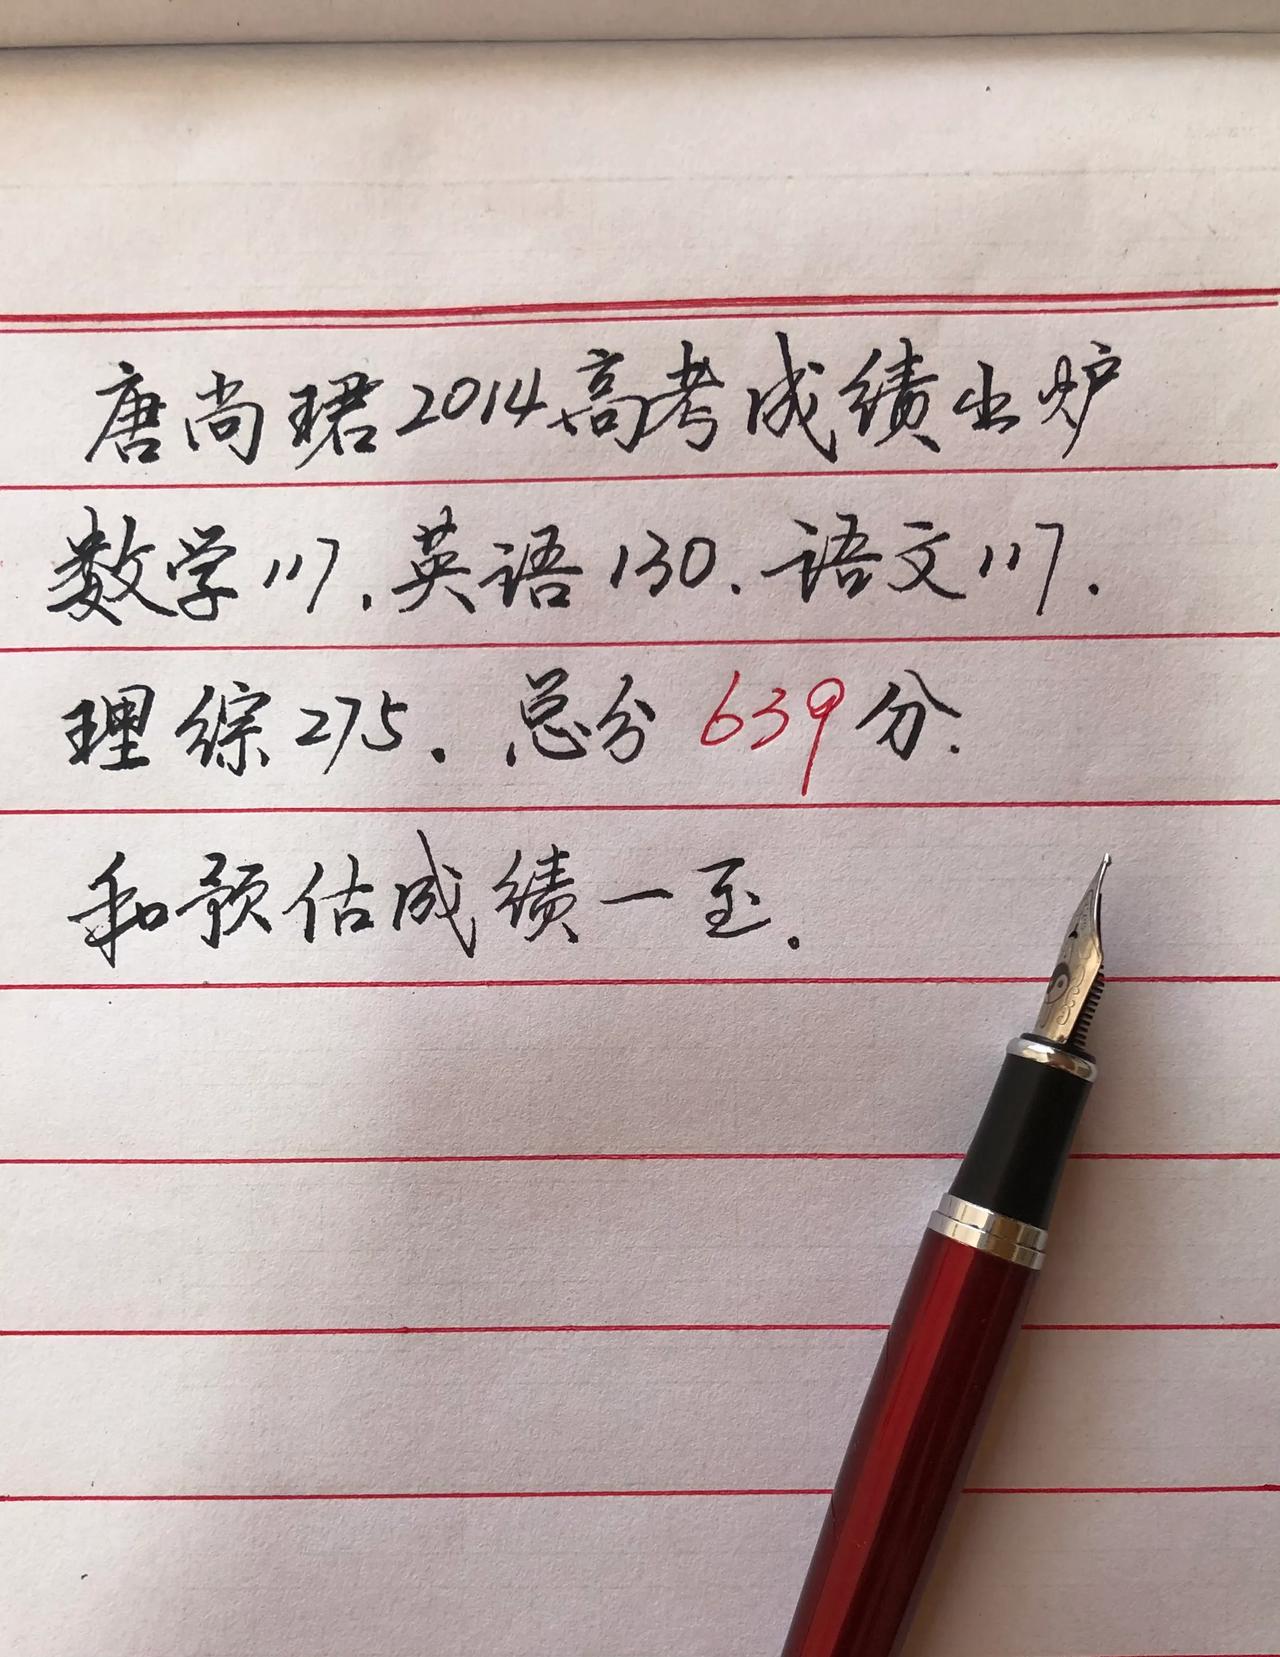 唐尚珺2014高考成绩出炉
数学117.英语130.语文117.
理综275.总分639分.
和预估成绩一至.